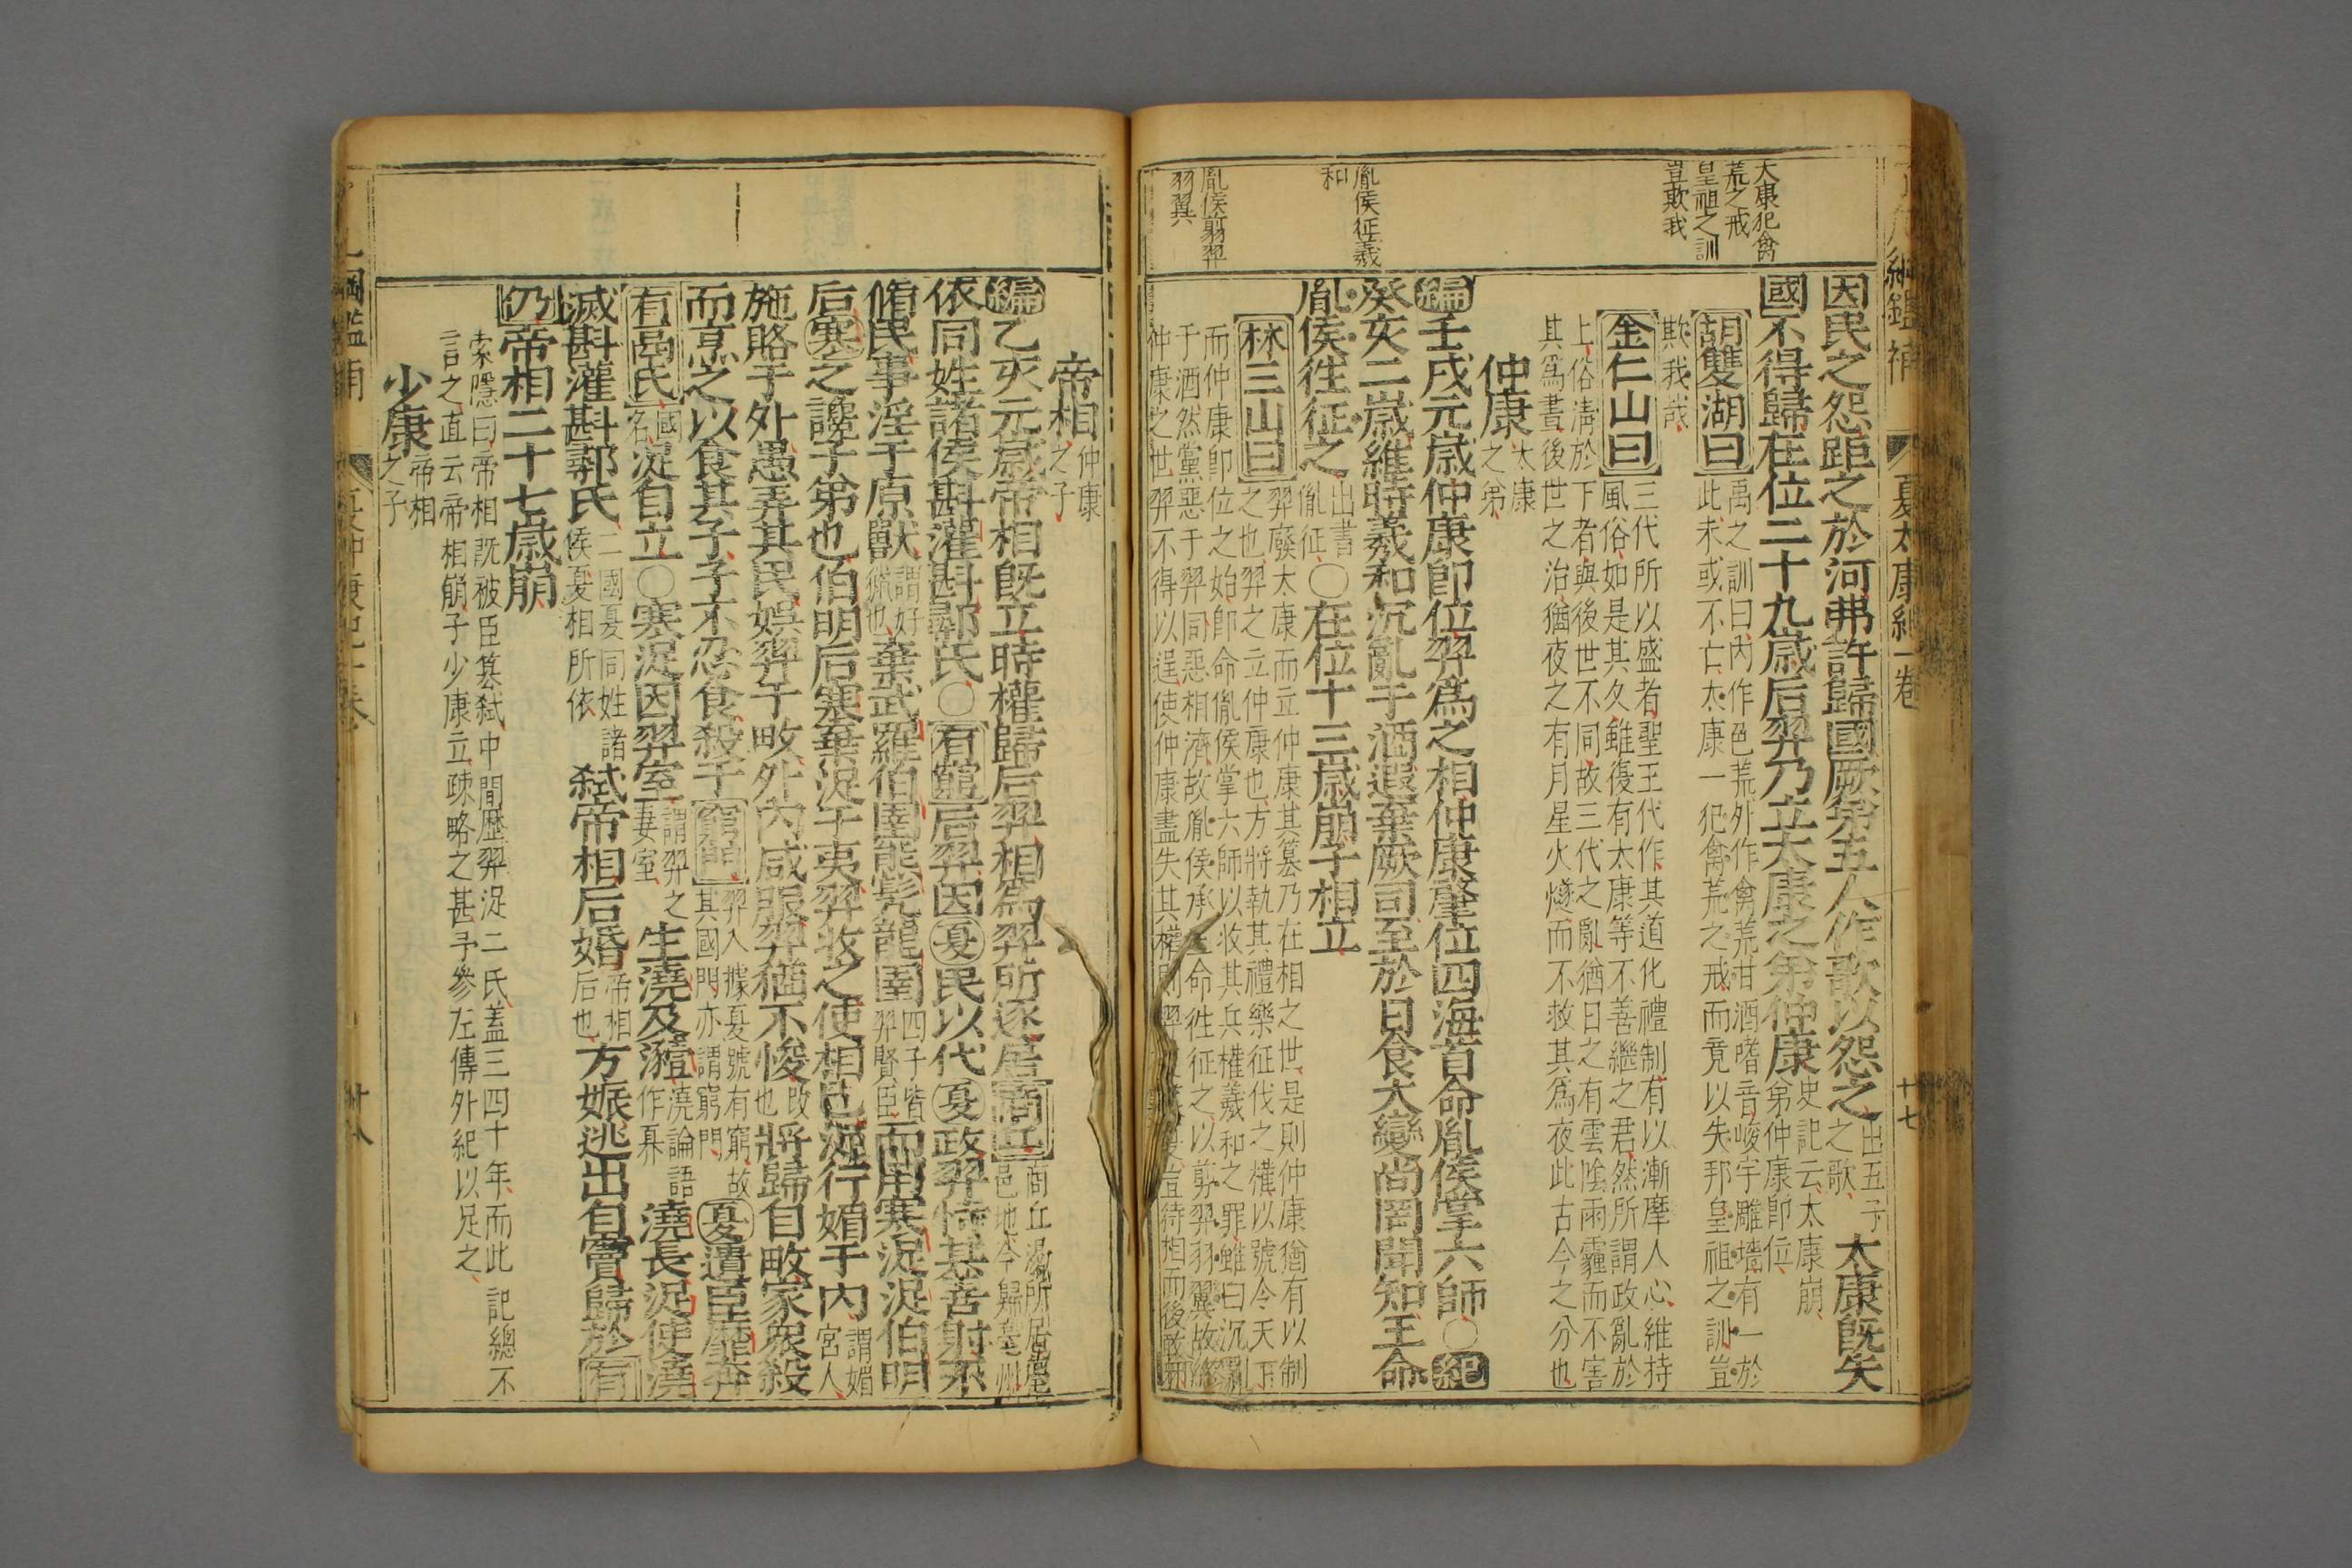 大康犯禽
荒之戒
皇祖之訓
豈欺我
胤侯征羲
和
胤侯翦羿
羽翼
夏太康紀一卷
十七
因民之怨距之於河弗許歸國厥弟五人作歌以怨之出五子之歌太康既失
國不得歸在位二十九歲后羿乃立太康之弟仲康史記云太康崩弟仲康即位
胡雙湖曰禹之訓曰內作色荒外作禽荒甘酒嗜音峻宇雕墻有一於此未或不亡太康一犯禽荒之戒而竟以失邦皇祖之訓豈
欺我哉
金仁山曰三代所以盛者聖王代作其道化禮制有以漸摩人心維持風俗如是其久雖復有太康等不善繼之君然所謂政亂於
上俗清於下者與後世不同故三代之亂猶日之有雲陰雨霾而不害
其為晝後世之治猶夜之有月星火燧而不救其為夜此古今之分也
仲康太康之弟
編壬戌元歲仲康卽位羿為之相仲康肇位四海首命胤侯掌六師○紀
癸亥二歲維時羲和沉亂于酒遐棄厥司至於日食大變尚罔聞知王命
胤侯往征之出書胤征○在位十三歲崩子相立
林三山曰羿廢太康而立仲康其篡乃在相之世是則仲康猶有以制之也羿之立仲康也方將執其禮樂征伐之權以號令天下
而仲康卽位之始卽命胤侯掌六師以收其兵權羲和之罪雖曰沉亂
于酒然黨惡于羿同惡相濟故胤侯承王命徃征之以剪羿羽翼故終
仲康之世羿不得以逞使仲康盡失其權則羿豈待相而後敢
帝相仲康之子
編乙亥元歲帝相旣立時權歸后羿相為羿所逐居商丘商丘湯所居邑地今歸亳州
依同姓諸侯斟灌斟鄩氏○有窮后羿因夏民以代夏政羿恃其善射不
脩民事淫于原獸謂好獵也棄武羅伯圉熊髡龍圉四子皆羿賢臣而用寒浞浞伯明
后寒之讒子弟也伯明后寒棄浞于夷羿收之使相已浞行媚于內謂媚宮人
施賂于外愚弄其民娛羿于畋外內咸服羿猶不悛改也將歸自畋家衆殺
而烹之以食其子子不忍食殺于窮門羿入據夏號有窮故其國門亦謂窮門夏遺臣靡奔
有鬲氏國名浞自立○寒浞因羿室謂羿之妻室生澆及豷澆論語作奡澆長浞使澆
滅斟灌斟鄩氏二國夏同姓諸侯夏相所依弒帝相后婚帝相后也方娠逃出自竇歸於有
仍帝相二十七歲崩
索隱曰帝相既被臣篡弒中間歷羿浞二氏蓋三四十年而此記總不
言之直云帝相崩子少康立疎略之甚予參左傳外紀以足之
少康帝相之子